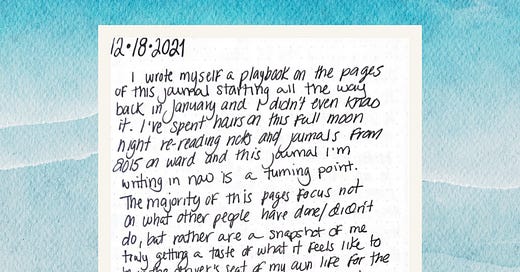 12•18•2021
I wrote myself a playbook on the pages
of this journal starting all the way
back in January and I didn't even know
it. I've spent hours on this full moon
night re-reading notes and journals from
2015 on ward and this journal I'm
writing in now is a turning point.
The majority of this pages focus not
on what other people have done/didn't
do, but rather are a snapshot of me
truly getting a taste of what it feels like to
driver's seat of my own life for the